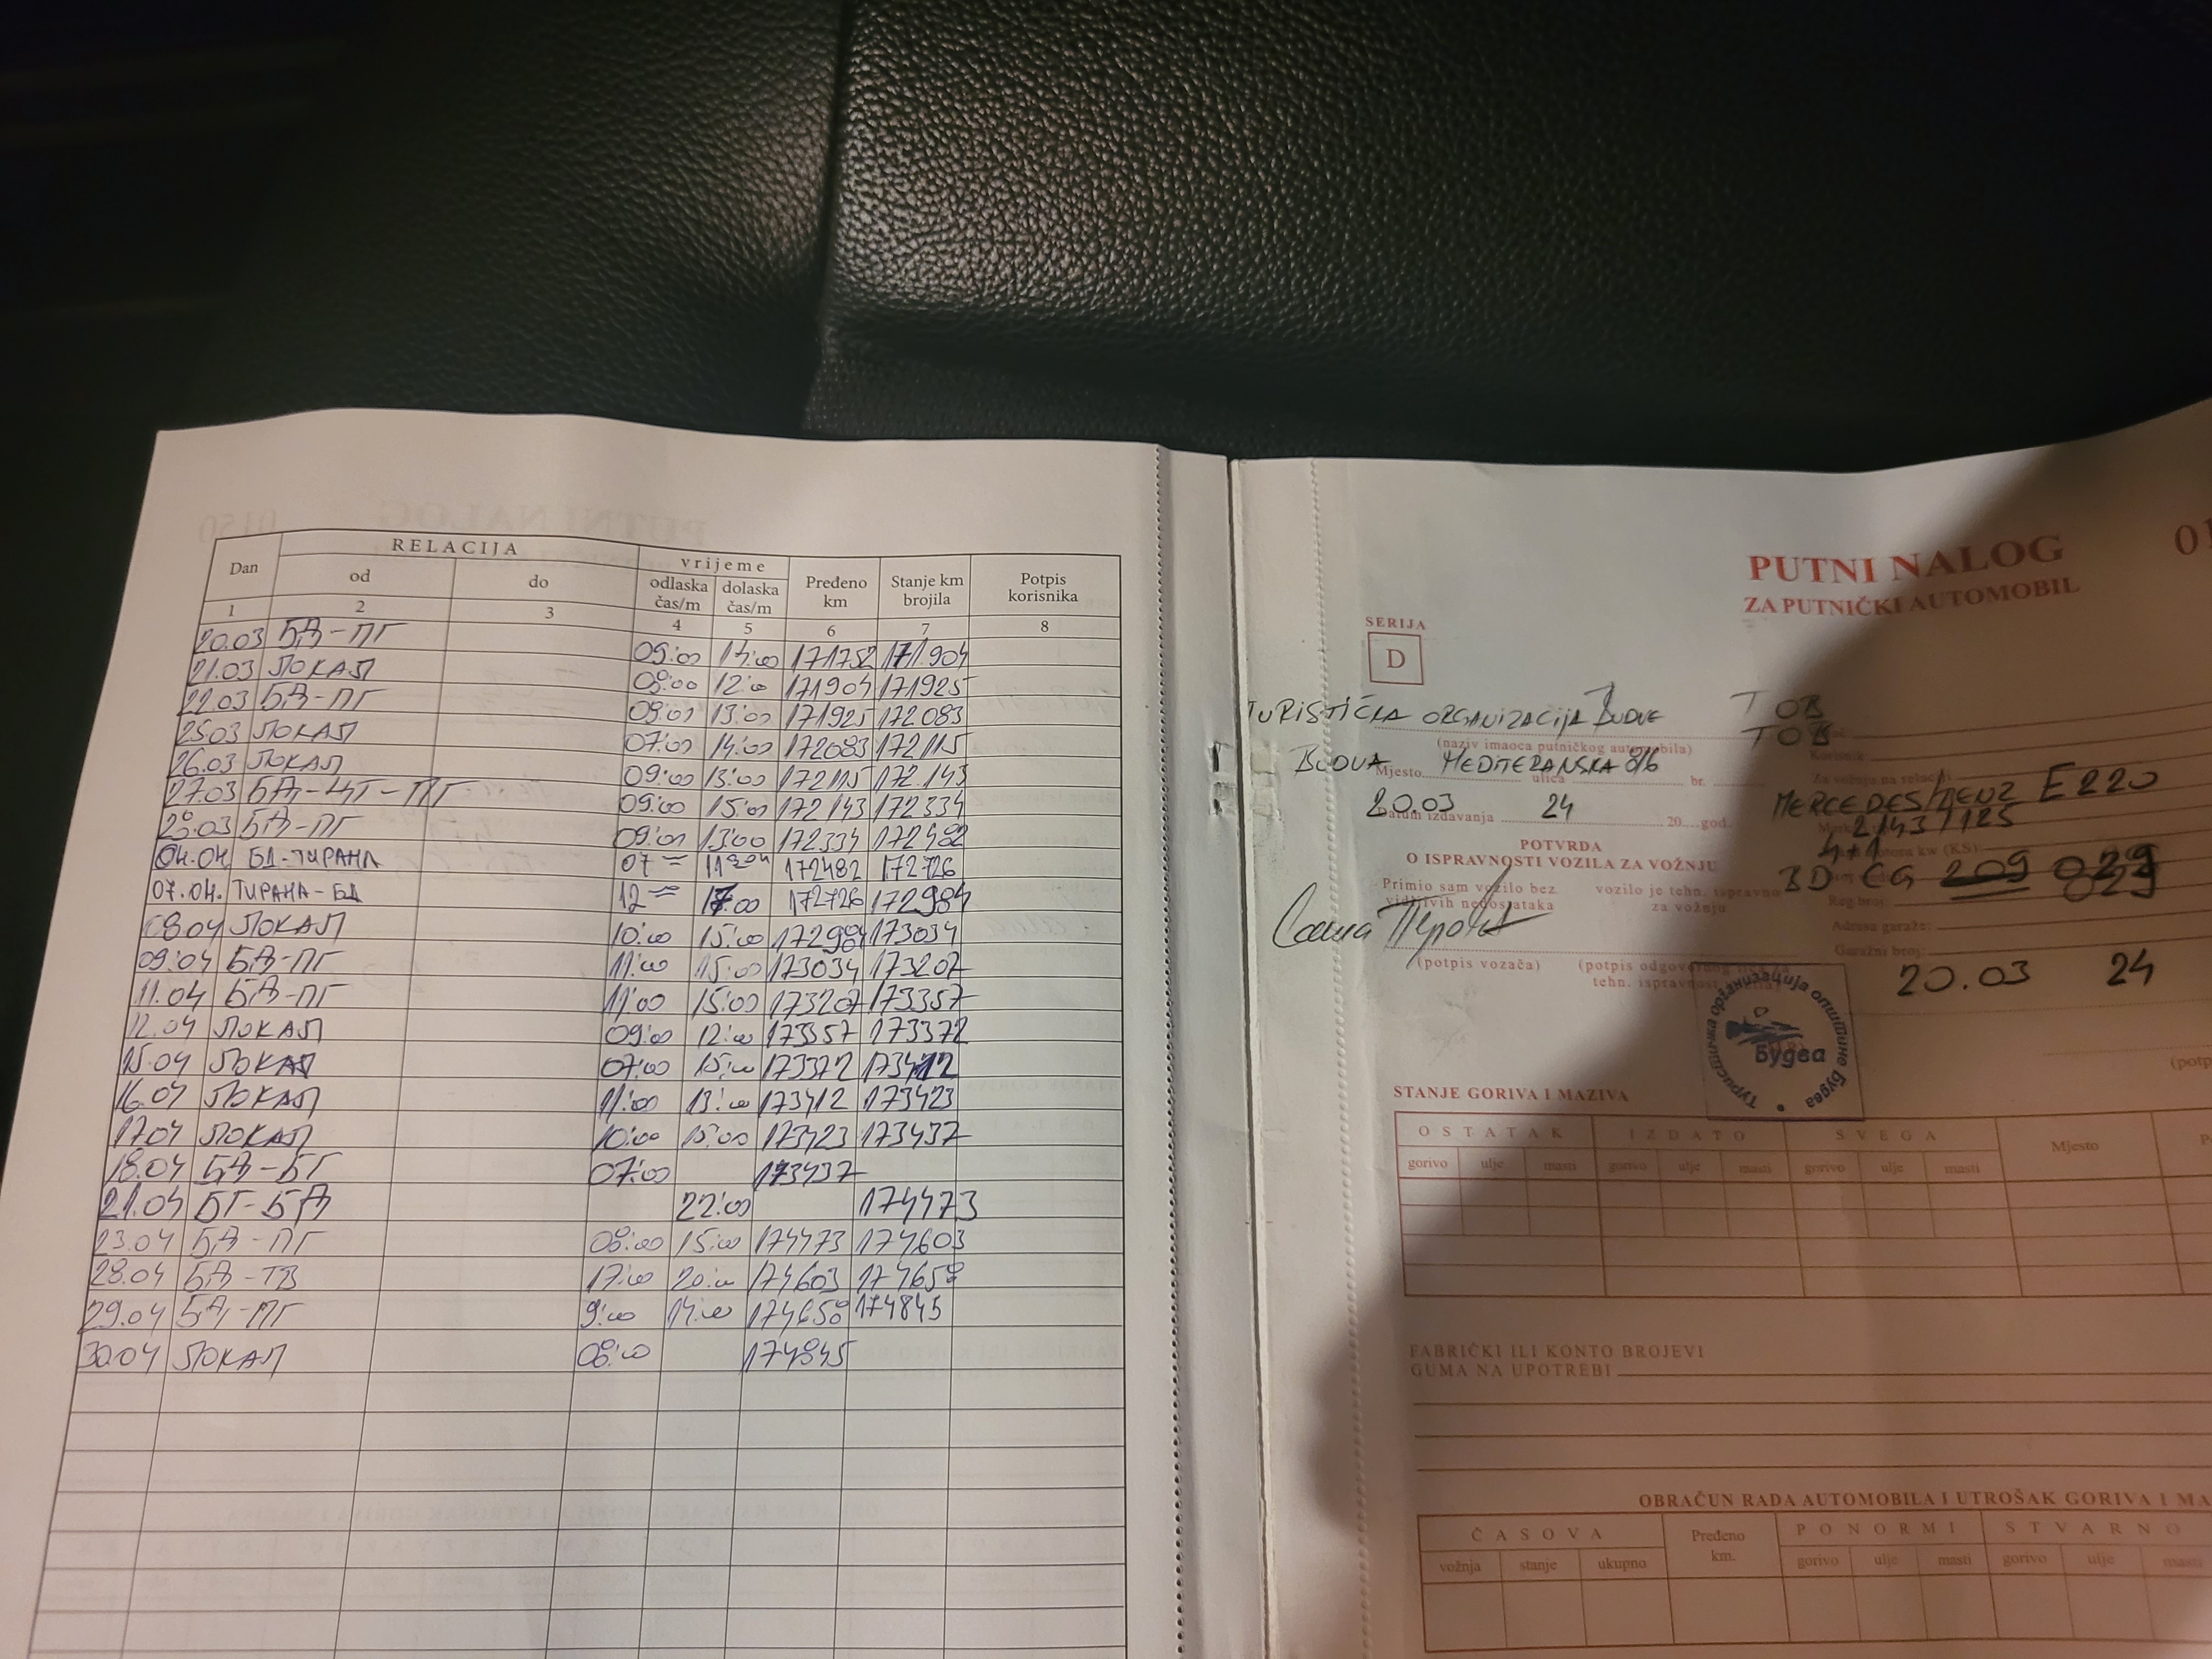 RELACIJA
Dan od do vrijeme odlaska čas/m dolaska čas/m Pređeno km Stanje km brojila Potpis korisnika
1 2 3 4 5 6 7 8
20.03 БД-ПГ 09:00 14:00 171752 171.904
21.03 ЛОКАЛ 08:00 12:00 171904 171925
22.03 БД-ПГ 09:00 13:00 171925 172083
25.03 ЛОКАЛ 07:00 14:00 172083 172115
26.03 ЛОКАЛ 09:00 13:00 172115 172.143
27.03 БД-ЦТ-ПГ 09:00 15:00 172143 172334
28.03 БД-ПГ 09:00 13:00 172334 172482
04.04. БД-ТИРАНА 07 172482 172726
07.04. ТИРАНА-БД 12 17:00 172726 172984
08.04 ЛОКАЛ 10:00 15:00 172984 173034
09.04 БД-ПГ 11:00 15:00 173034 173207
11.04 БД-ПГ 11:00 15:00 173207 173357
12.04 ЛОКАЛ 09:00 12:00 173357 173372
15.04 ЛОКАЛ 07:00 15:00 173372 173412
16.04 ЛОКАЛ 11:00 13:00 173412 173423
17.04 ЛОКАЛ 10:00 15:00 173423 173437
18.04 БД-БГ 07:00 173437
21.04 БГ-БД 22:00 174473
23.04 БД-ПГ 08:00 15:00 174473 174603
28.04 БД-ТВ 17:00 20:00 174603 174658
29.04 БД-ПГ 9:00 14:00 174658 174845
30.04 ЛОКАЛ 08:00 174845
PUTNI NALOG 01
ZA PUTNIČKI AUTOMOBIL
SERIJA
D
TURISTIČKA ORGANIZACIJA BUDVE TOB
TOB
(naziv imaoca putničkog automobila)
Korisnik:
BUDVA Mjesto MEDITERANSKA 8/6 ulica br.
Za vožnju na relaciji
MERCEDES/BENZ E220
20.03 24
Datum izdavanja 20 god.
2143/125
POTVRDA
O ISPRAVNOSTI VOZILA ZA VOŽNJU
4+1
kw (KS):
BD CG 209 029
Reg.broj:
Primio sam vozilo bez vidljivih nedostataka
vozilo je tehn. ispravno za vožnju
Adresa garaže:
Garažni broj:
(potpis vozača)
(potpis odgovornog
tehn.
20.03 24
Туристичка организација општине Будва
Будва
(potp
STANJE GORIVA I MAZIVA
OSTATAK IZDATO SVEGA Mjesto
gorivo ulje masti gorivo ulje masti gorivo ulje masti
FABRIČKI ILI KONTO BROJEVI
GUMA NA UPOTREBI
OBRAČUN RADA AUTOMOBILA I UTROŠAK GORIVA I MA
ČASOVA Pređeno km. PO NORMI STVARNO
vožnja stanje ukupno gorivo ulje masti gorivo ulje masti